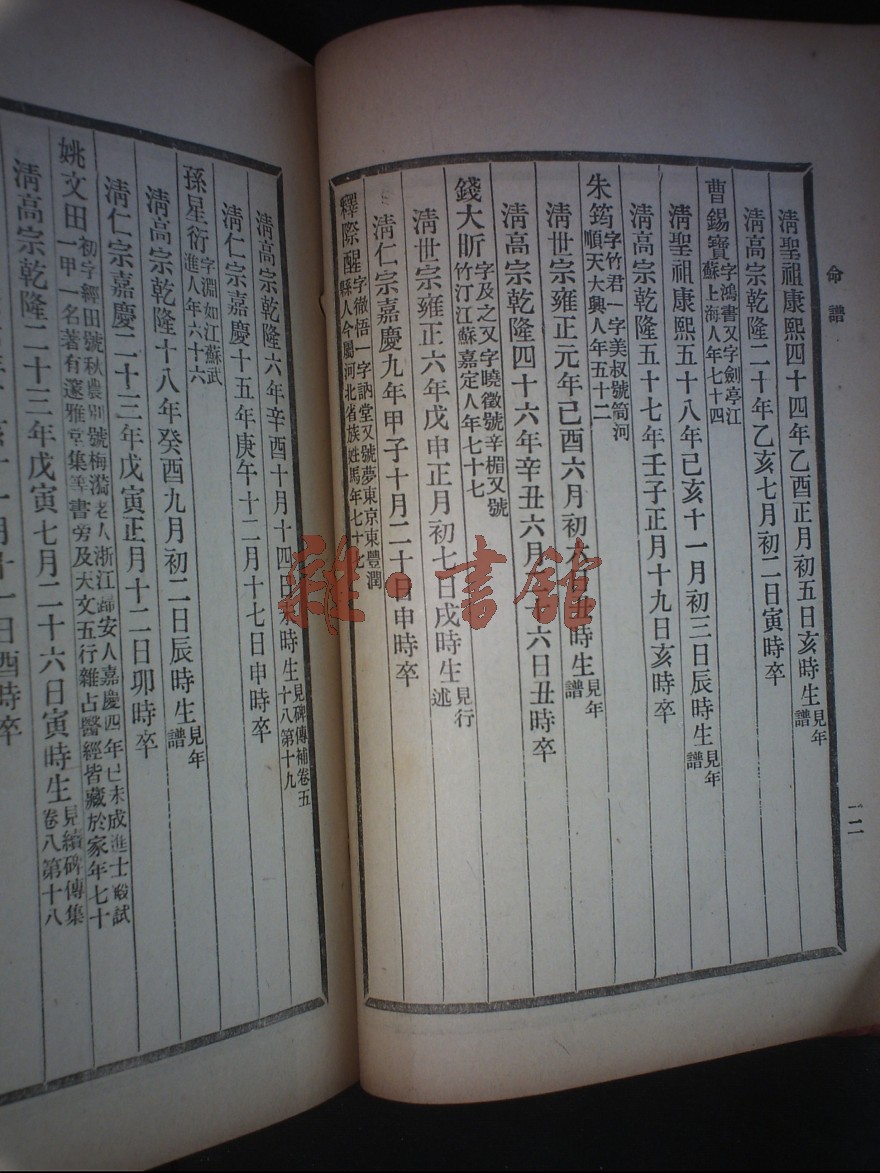 命譜
一二
清聖祖康熙四十四年乙酉正月初五日亥時生見年譜
清高宗乾隆二十年乙亥七月初二日寅時卒
曹錫寶字鴻書又字劍亭江蘇上海人年七十四
清聖祖康熙五十八年己亥十一月初三日辰時生見年譜
清高宗乾隆五十七年壬子正月十九日亥時卒
朱筠字竹君一字美叔號笥河順天大興人年五十二
清世宗雍正元年己酉六月初六日丑時生見年譜
清高宗乾隆四十六年辛丑六月二十六日丑時卒
錢大昕字及之又字曉徵號辛楣又號竹汀江蘇嘉定人年七十七
清世宗雍正六年戊申正月初七日戌時生見行述
清仁宗嘉慶九年甲子十月二十日申時卒
釋際醒字徹悟一字訥堂又號夢東京東豐潤縣人今屬河北省族姓馬年七十
清高宗乾隆六年辛酉十月十四日未時生見碑傳補卷五十八第十九
清仁宗嘉慶十五年庚午十二月十七日申時卒
孫星衍字淵如江蘇武進人年六十六
清高宗乾隆十八年癸酉九月初二日辰時生見年譜
清仁宗嘉慶二十三年戊寅正月十二日卯時卒
姚文田初字經田號秋農別號梅漪老人浙江歸安人嘉慶四年己未成進士殿試一甲一名著有邃雅堂集等書旁及天文五行雜占醫經皆藏於家年七十
清高宗乾隆二十三年戊寅七月二十六日寅時生見續碑傳集卷八第十八
十一月十一日酉時卒
雜·書館